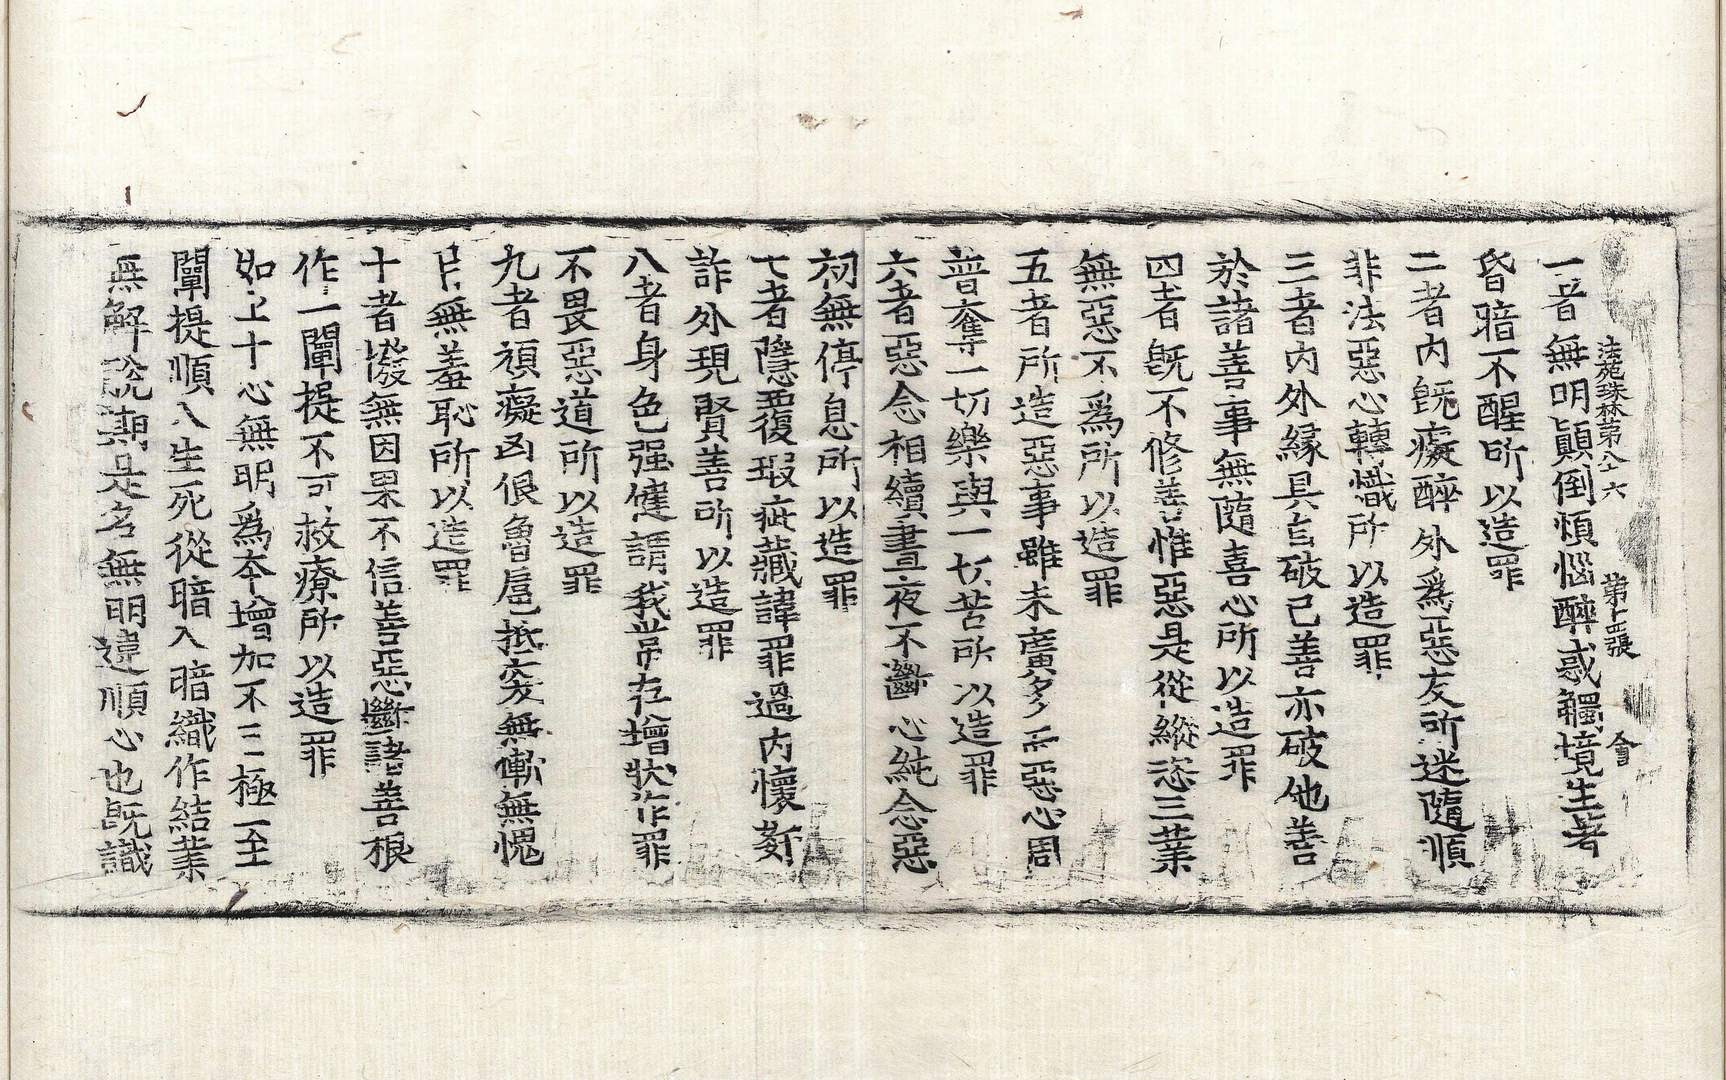 法苑珠林第八十六 第十四張 會
一者無明顚倒煩惱醉惑觸境生著
昏暗不醒所以造罪
二者内旣癡醉外爲惡友所迷隨順
非法惡心轉熾所以造罪
三者内外緣具自破己善亦破他善
於諸善事無隨喜心所以造罪
四者旣不修善惟惡是從縱恣三業
無惡不爲所以造罪
五者所造惡事雖未廣多而惡心周
普奪一切樂與一切苦所以造罪
六者惡念相續晝夜不斷心純念惡
初無停息所以造罪
七者隱覆瑕疵藏諱罪過内懷姧
詐外現賢善所以造罪
八者身色强健謂我常存增狀作罪
不畏惡道所以造罪
九者頑癡凶佷魯扈抵突無慚無愧
無羞恥所以造罪
十者撥無因果不信善惡斷諸善根
作一闡提不可救療所以造罪
如上十心無明爲本增加不已極至
闡提順入生死從暗入暗織作結業
無解脫期是名無明違順心也旣識